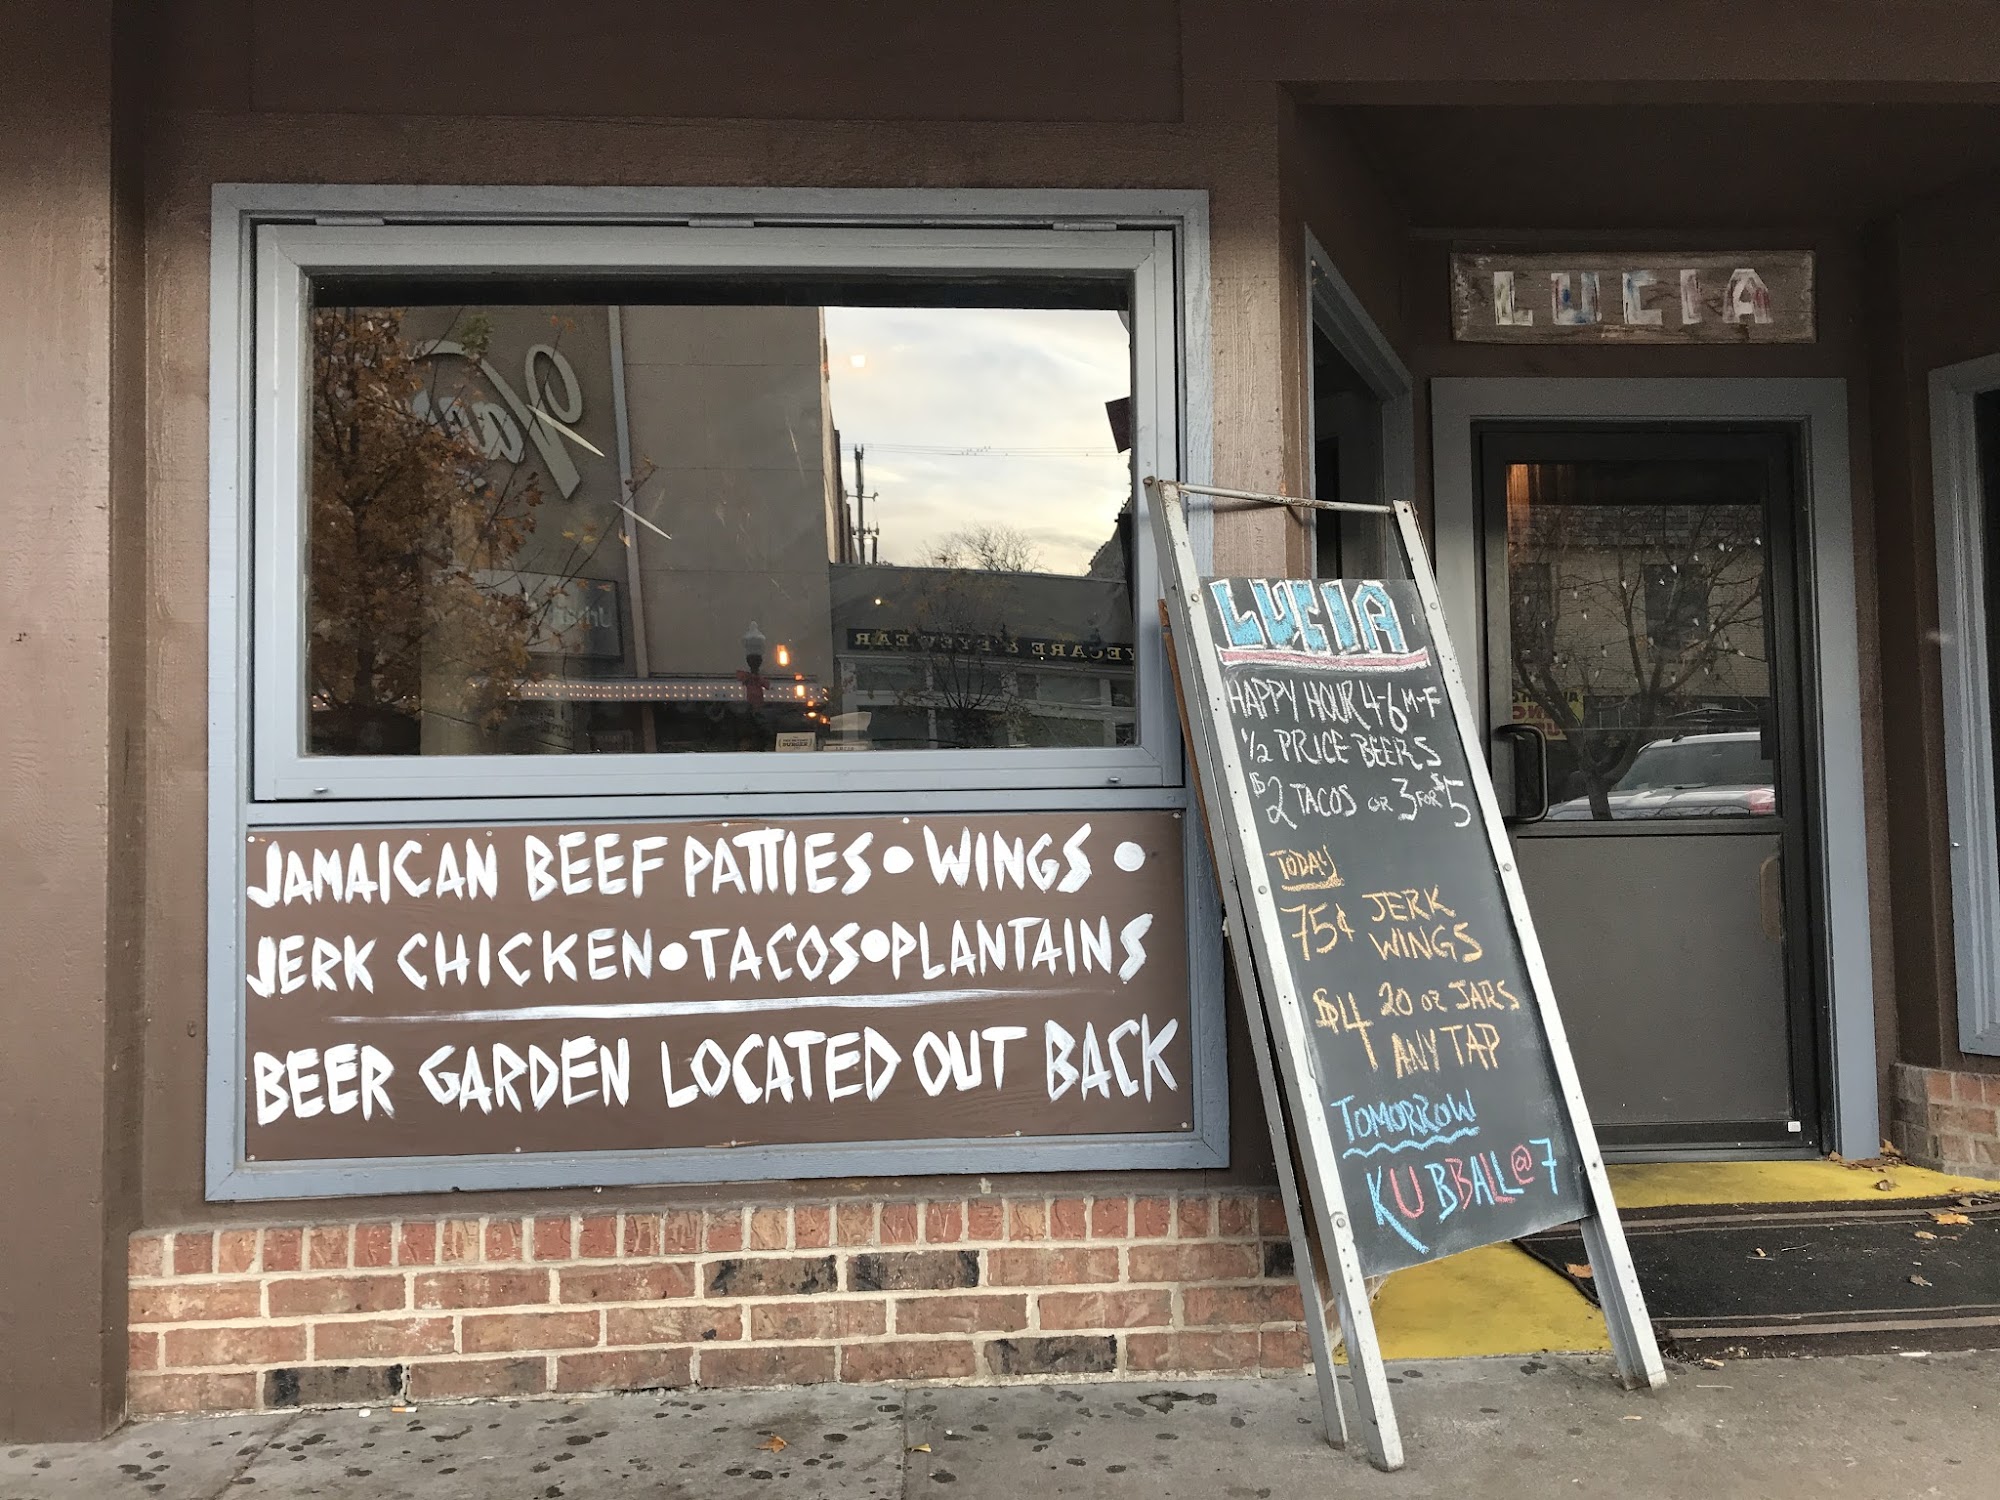 LUCIA
JAMAICAN BEEF PATTIES • WINGS •
JERK CHICKEN • TACOS • PLANTAINS
BEER GARDEN LOCATED OUT BACK
LUCIA
HAPPY HOUR 4-6 M-F
1/2 PRICE BEERS
$2 TACOS OR 3 FOR $5
TODAY
75¢ JERK
WINGS
$4 20 OZ JARS
ANY TAP
TOMORROW
KU BBALL @ 7
EYECARE & EYEWEAR